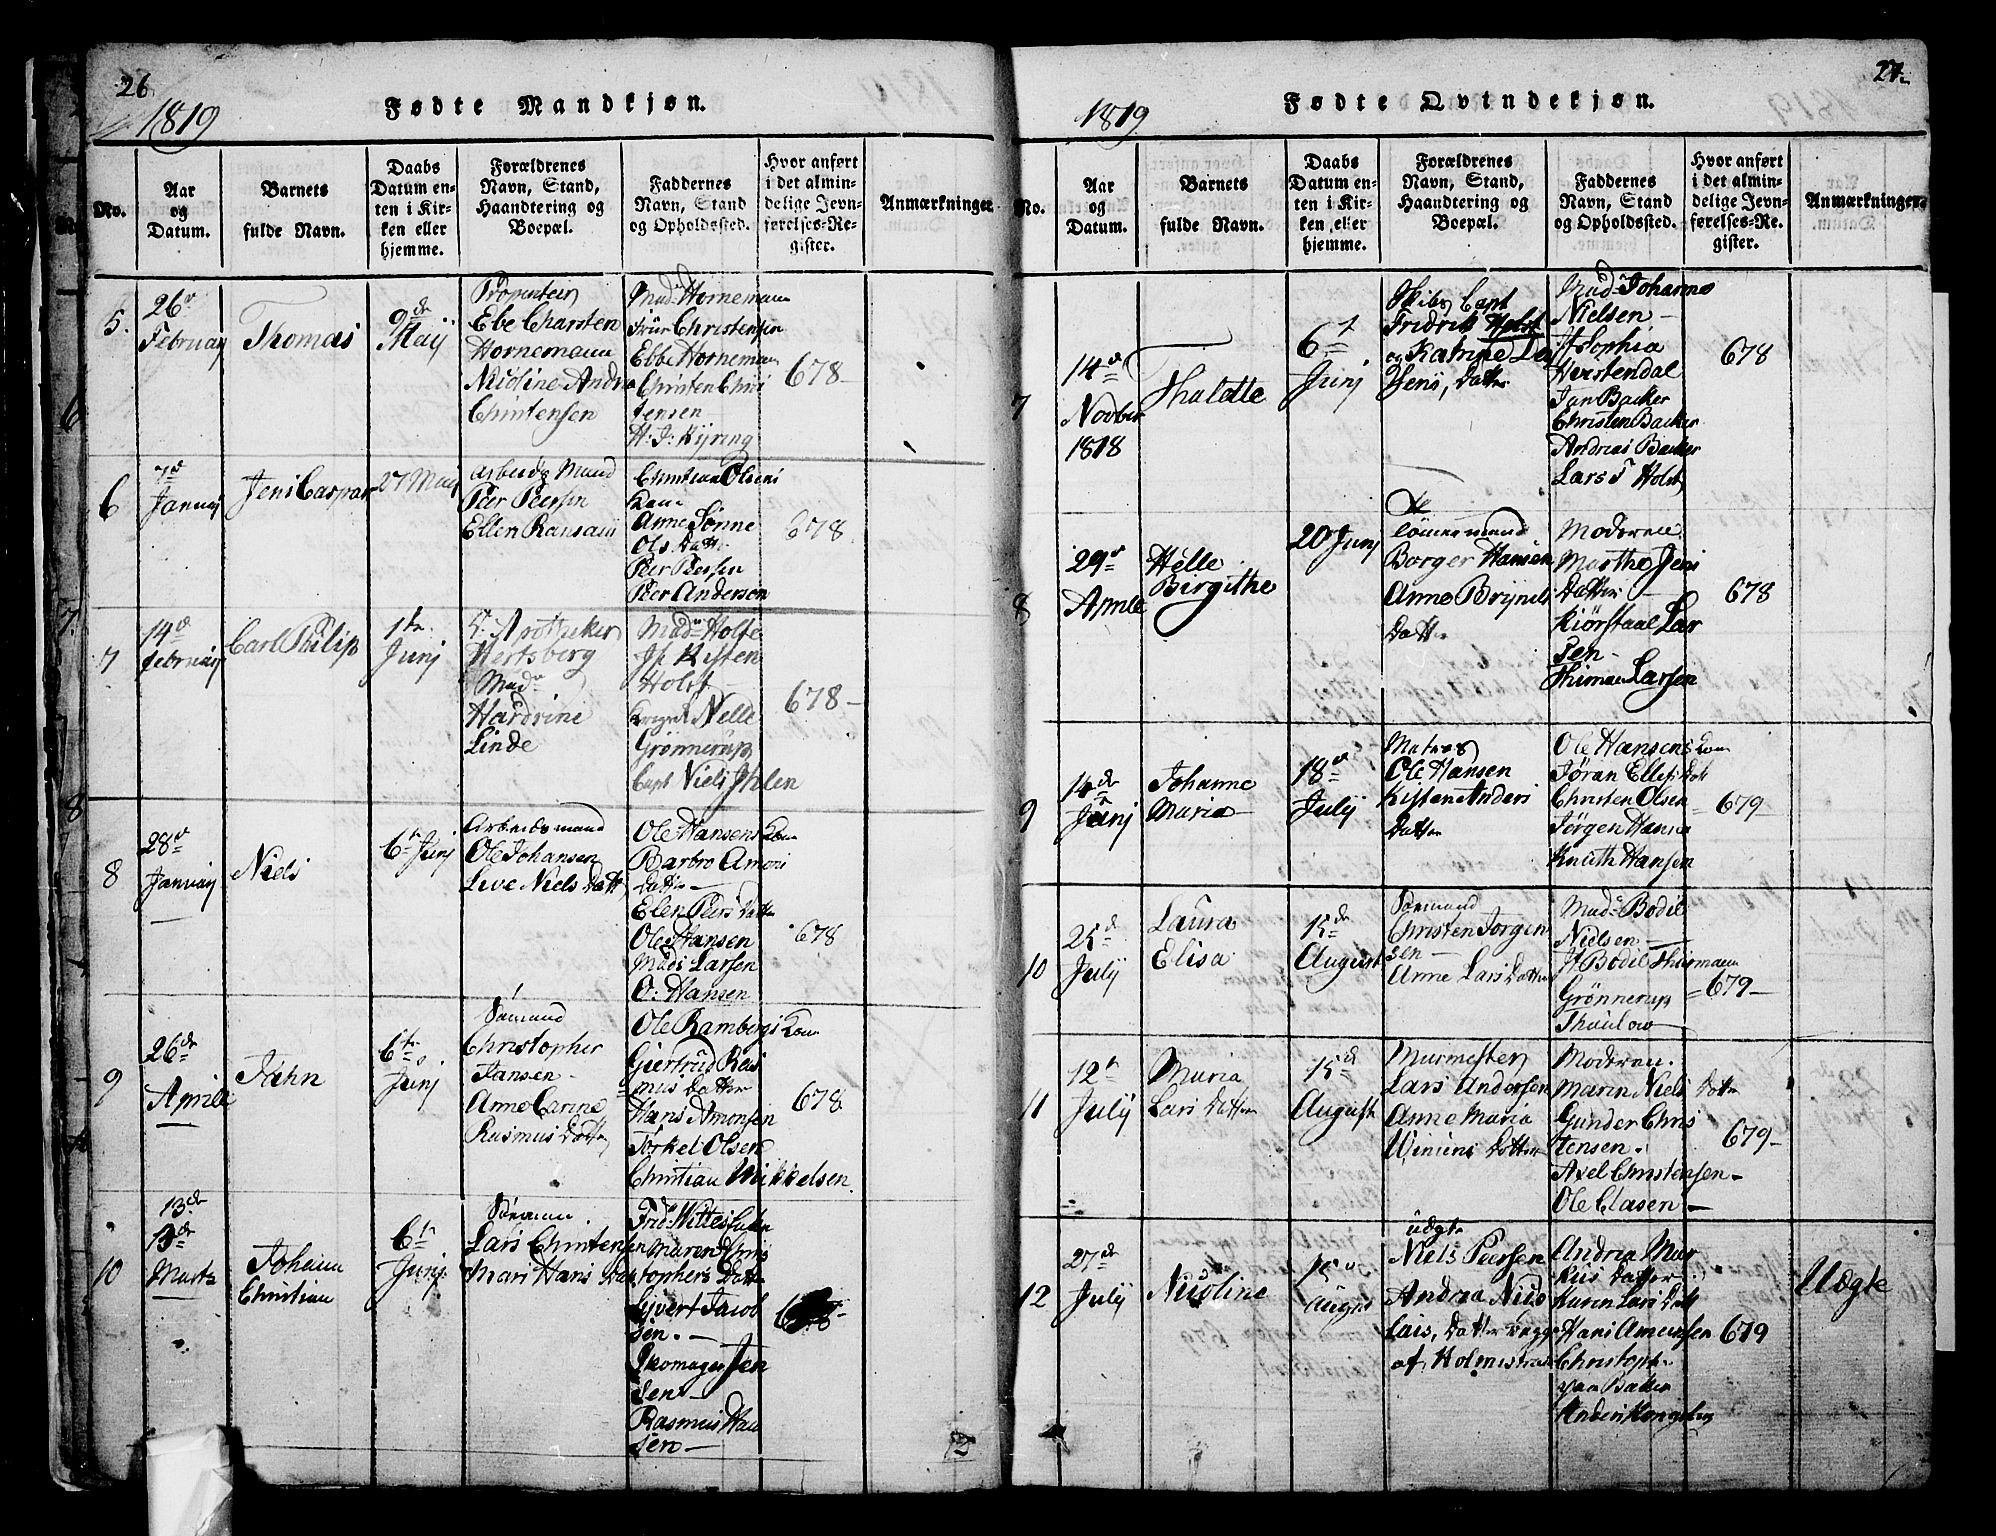 26
1819
Fødte Mandkjøn.
No.
Aar
og
Datum.
Barnets
fulde Navn.
Daabs
Datum en-
ten i Kir-
ken eller
hjemme.
Forældrenes
Navn, Stand,
Haandtering og
Boepæl.
Faddernes
Navn, Stand
og Opholdssted.
Hvor anført
i det almin-
delige Jevn-
førelses-Re-
gister.
Anmærkninger
5.
26
Februarij
Thomas
9de
Maij
Ebe Charsten
Hornemann
Nicoline Andrea
Christensen
Mad Hornemann
Frue Christensen
Ebbe Horneman
Christen Chris
tensen
H: J: Kyring
678
6
7d
Januarij
Jens Caspar
27 Maij
Arbeids Mand
Peer Peersen
Ellen Hansdatt
Christian Olsens
Kone
Anne Sønne
Ols Datt:
Peer Peersen
Peer Anderson
678
7
14d
Februarij
Carl Philip
1te
Junj
Apotheker
Hertsberg
Mad
Hardvine
Linde
Mad Holte
Jf Kisten
Holst
Nelle
Grønnerup
Capt Niels Ihlen
678
8
28
Januarij
Niels
6te Junj
Arbeidsmand
Ole Johansen
Live Niels Datt
Ole Hansens Kone
Barbro Amons
Datter
Elen Peers Datter
Ole Hansen
Mads Larsen
O: Hansen
678
9
26de
Aprill
Jahn
6te
Junj
Sømand
Christopher
Jansen
Anne Carine
Rasmus Datter
Ole Rambergs Kone
Giertrud Ras
mus Datter
Hans Amonsen
Torkel Olsen
Christian Mikkelsen
678
10
13de
13de
Marts
Johann
Christian
6te
Junj
Sømann
Lars Christensen
Mari Hans Datt
Maren Chris
tophers Datter
Syvert Jacob
sen
Skomager Jen
sen
Rasmus Han
sen
27
1819
Fødte Qvindekjøn.
No.
Aar
og
Datum.
Barnets
fulde Navn.
Daabs
Datum en-
ten i Kir-
ken eller
hjemme.
Forældrenes
Navn, Stand,
Haandtering og
Boepæl.
Faddernes
Navn, Stand
og Opholdssted.
Hvor anført
i det almin-
delige Jevn-
førelses-Re-
gister.
Anmærkninger
7
14de
Novber
1818
Thalette
6te
Junj
Skibs Capt
Fridrik Holst
og Katrine La
Mad Johanne
Nielsen
Jf Sophia
Herstendal
Jan Backer
Christen Backer
Andreas Backer
Lars T Holst
678
8
29
Aprill
Helle
Birgithe
20 Junj
Borger Hansen
Anne Brynils
Datter
Moderen
Marthe Jens
Datter
Kiørstaal Lar
sen
Thiman Larsen
678
9
14de
Junj
Johanne
Maria
18
Julij
Matros
Ole Hansen
Kistene Anders
Datter
Ole Hansens Kone
Jøran Ellefs Datt
Christen Olsen
Jørgen Hansen
Knuth Hansen
679
10
25de
Julij
Laura
Elisa
15de
August
Sømand
Christen Jorgen
sen
Anne Lars Datter
Mad Bodil
Nielsen
Jf Bodil Thurmann
Grønnerup
Thaulow
679
11
12te
Julij
Maria
Lars Datter
15de
August
Murmester
Lars Andersen
Anne Maria
Datter
Moderen
Maren Niels Datter
Gunder Chris
tensen
Axel Christensen
Ole Clasen
679
12
27de
Julij
Nicoline
15
August
uægte
Niels Peersen
Andrea Nico
lais, Datter begge
af Holmestrand
Andrea Mar
kus Datter
Karen Lars Datt
Hans Amensen
Christoph
von Backer
Anders Kongsberg
679
Uægte